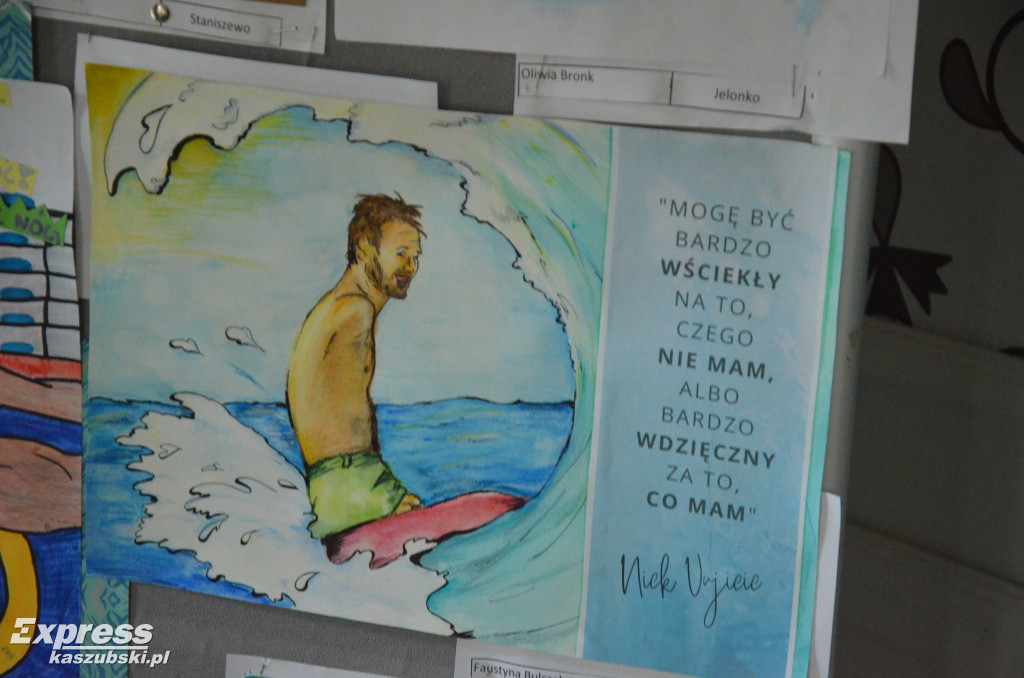 Staniszewo
Oliwia Bronk
Jelonko
NÓG
"MOGĘ BYĆ
BARDZO
WŚCIEKŁY
NA TO,
CZEGO
NIE MAM,
ALBO
BARDZO
WDZIĘCZNY
ZA TO,
CO MAM"
Nick Vujicic
Faustyna
Express
kaszubski.pl